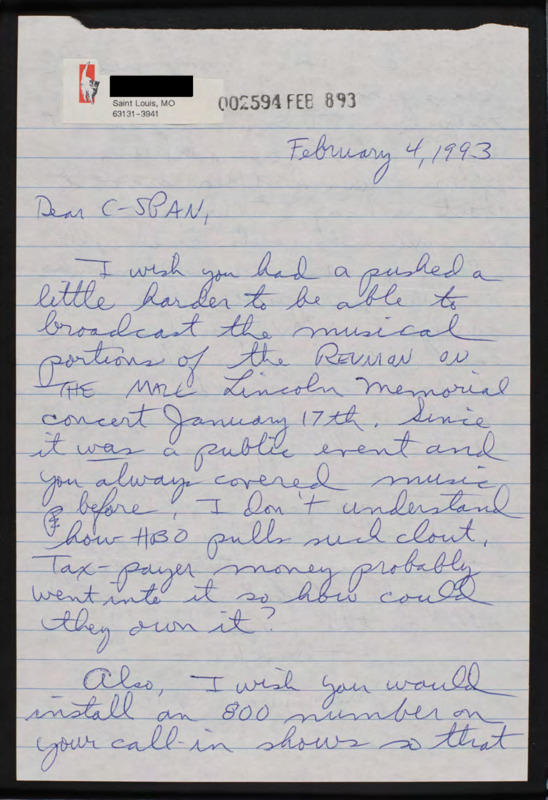 Saint Louis, MO
63131-3941
002594 FEB 893
February 4, 1993
Dear C-SPAN,
I wish you had a pushed a
little harder to be able to
broadcast the musical
portions of the REUNION ON
THE MALL Lincoln Memorial
concert January 17th. Since
it was a public event and
you always covered music
before, I don't understand
how HBO pulls such clout.
Tax-payer money probably
went into it so how could
they own it?
Also, I wish you would
install an 800 number on
your call-in shows so that